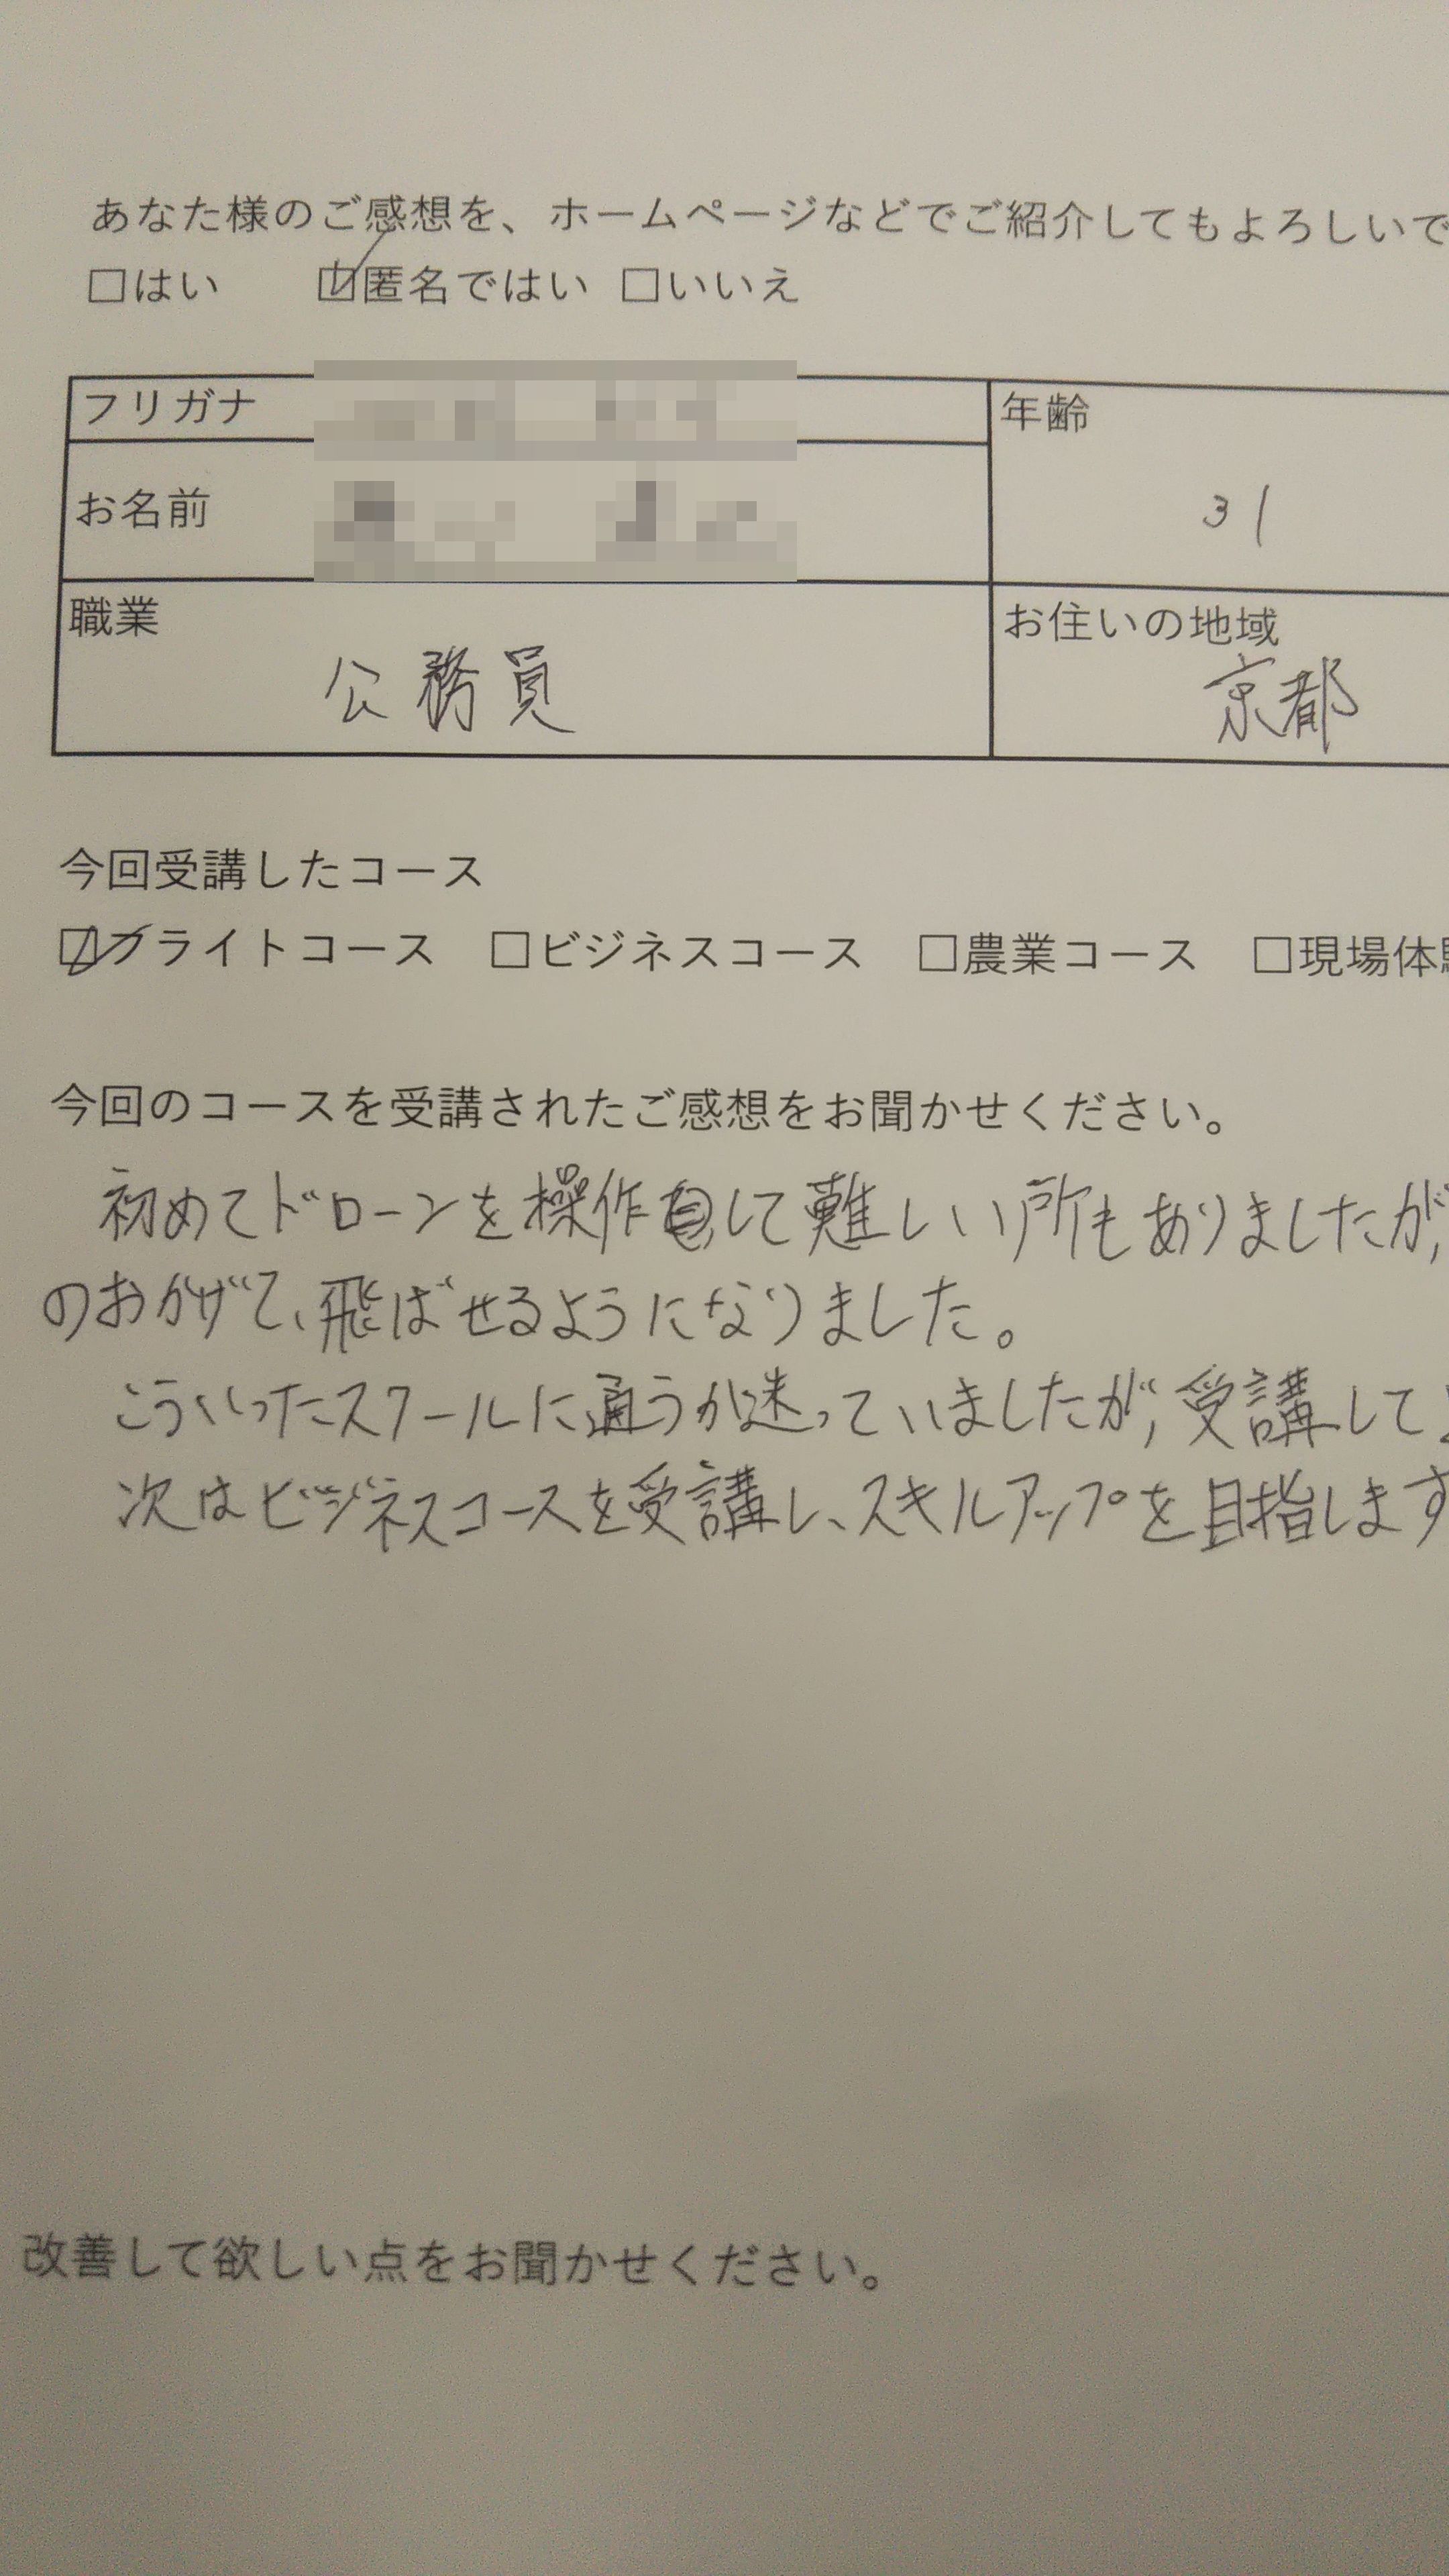 あなた様のご感想を、ホームページなどでご紹介してもよろしいで
□はい ☑匿名ではい □いいえ
フリガナ
年齢
お名前
31
職業
お住いの地域
公務員
京都
今回受講したコース
☑フライトコース □ビジネスコース □農業コース □現場体
今回のコースを受講されたご感想をお聞かせください。
初めてドローンを操作して難しい所もありましたが、
のおかげで、飛ばせるようになりました。
こういったスクールに通うか迷っていましたが、受講して
次はビジネスコースを受講し、スキルアップを目指します
改善して欲しい点をお聞かせください。